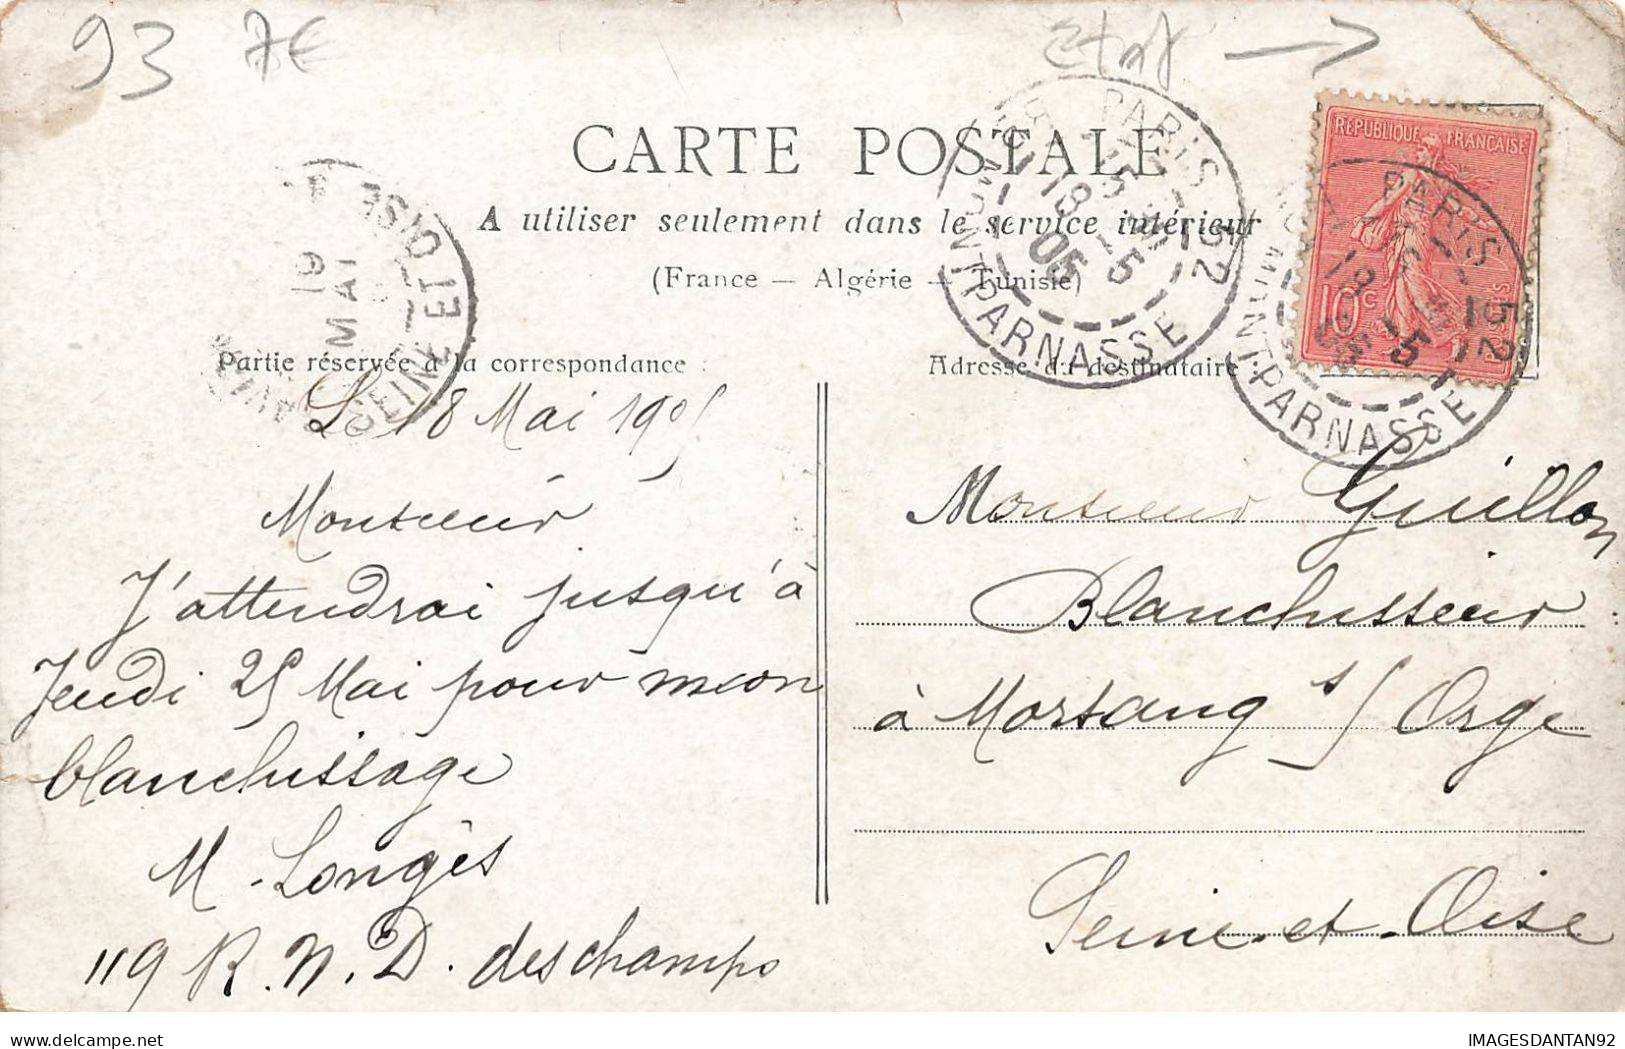 93 7€
CARTE POSTALE
A utiliser seulement dans le service intérieur
(France — Algérie — Tunisie)
PARIS 52
18 5 05
R. MONTPARNASSE
RÉPUBLIQUE FRANÇAISE
10c
PARIS 52
R. MONTPARNASSE
19 MAI
SEINE ET OISE
Partie réservée à la correspondance :
Le 18 Mai 1905
Monsieur
J'attendrai jusqu'à
Jeudi 25 Mai pour mon
blanchissage
M. Longès
119 R. N. D. des champs
Adresse du destinataire
Monsieur Guillon
Blanchisseur
à Morsang s/ Orge
Seine-et-Oise
IMAGESDANTAN92